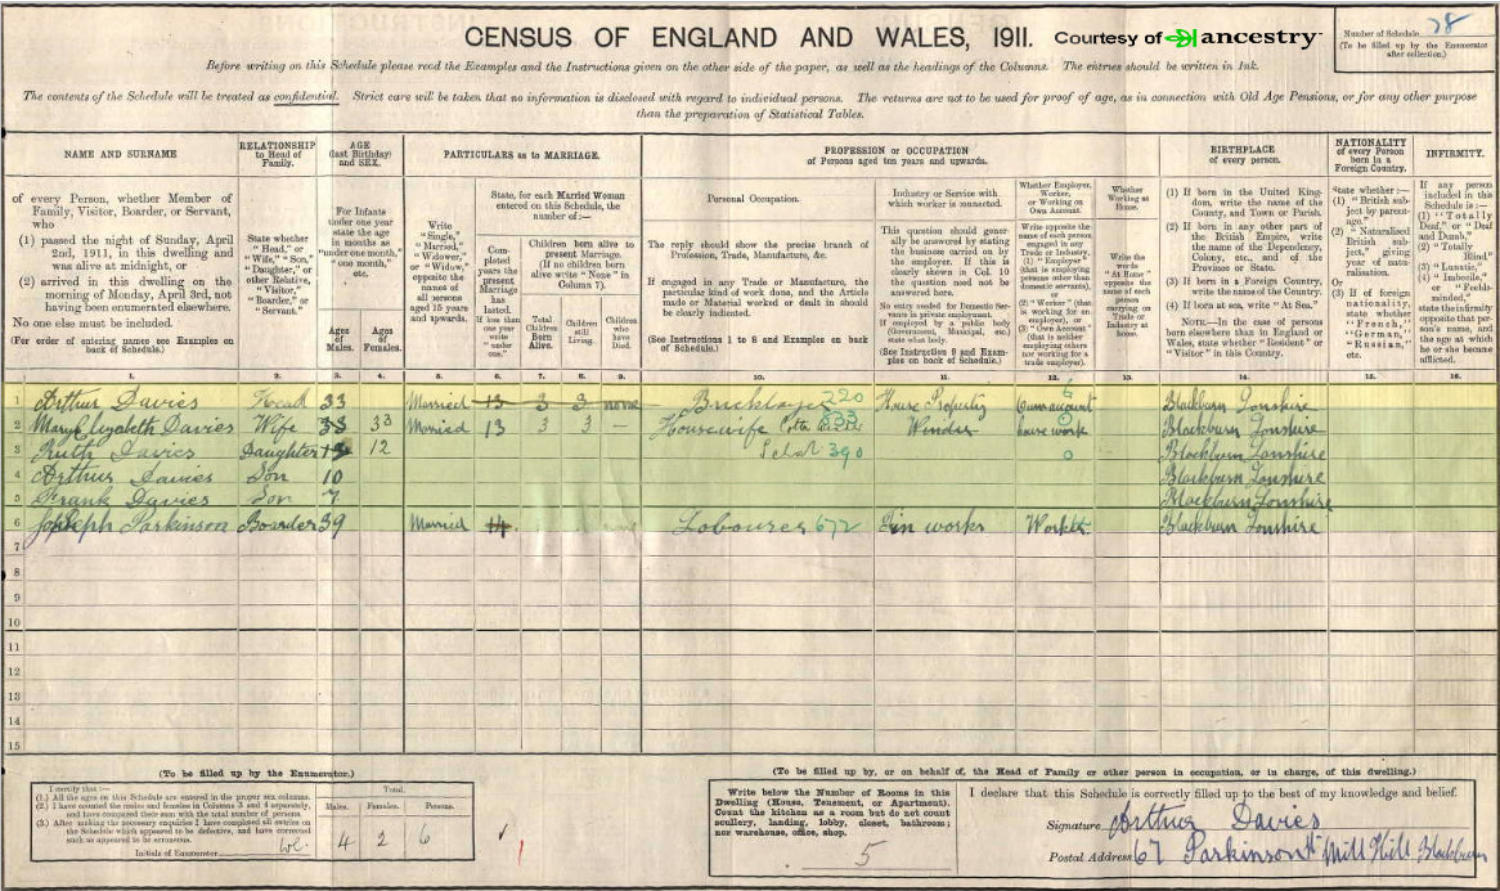 CENSUS OF ENGLAND AND WALES, 1911.
Courtesy of ancestry
Number of Schedule 78
(To be filled up by the Enumerator
after collection.)
Before writing on this Schedule please read the Examples and the Instructions given on the other side of the paper, as well as the headings of the Columns. The entries should be written in Ink.
The contents of the Schedule will be treated as confidential. Strict care will be taken that no information is disclosed with regard to individual persons. The returns are not to be used for proof of age, as in connection with Old Age Pensions, or for any other purpose
than the preparation of Statistical Tables.
NAME AND SURNAME
of every Person, whether Member of
Family, Visitor, Boarder, or Servant,
who
(1) passed the night of Sunday, April
2nd, 1911, in this dwelling and
was alive at midnight, or
(2) arrived in this dwelling on the
morning of Monday, April 3rd, not
having been enumerated elsewhere.
No one else must be included.
(For order of entering names see Examples on
back of Schedule.)
RELATIONSHIP
to Head of
Family.
State whether
"Head," or
"Wife," "Son,"
"Daughter," or
other Relative,
"Visitor,"
"Boarder," or
"Servant."
AGE
(last Birthday)
and SEX.
For Infants
under one year
state the age
in months as
"under one month,"
"one month,"
etc.
Ages
of
Males.
Ages
of
Females.
PARTICULARS as to MARRIAGE.
Write
"Single,"
"Married,"
"Widower,"
or "Widow,"
opposite the
names of
all persons
aged 15 years
and upwards.
State, for each Married Woman
entered on this Schedule, the
number of:—
Completed
years the
present
Marriage
has
lasted.
If less than
one year
write
"under
one."
Children born alive to
present Marriage.
(If no children born
alive write "None" in
Column 7).
Total
Children
Born
Alive.
Children
still
Living.
Children
who
have
Died.
PROFESSION or OCCUPATION
of Persons aged ten years and upwards.
Personal Occupation.
The reply should show the precise branch of
Profession, Trade, Manufacture, &c.
If engaged in any Trade or Manufacture, the
particular kind of work done, and the Article
made or Material worked or dealt in should
be clearly indicated.
(See Instructions 1 to 8 and Examples on back
of Schedule.)
Industry or Service with
which worker is connected.
This question should generally
be answered by stating
the business carried on by
the employer. If this is
clearly shown in Col. 10
the question need not be
answered here.
No entry needed for Domestic Servants
in private employment.
If employed by a public body
(Government, Municipal, etc.)
state what body.
(See Instruction 9 and Examples
on back of Schedule.)
Whether Employer,
Worker,
or Working on
Own Account.
Write opposite the
name of each person
engaged in any
Trade or Industry,
(1) "Employer"
(that is employing
persons other than
domestic servants),
or
(2) "Worker" (that
is working for an
employer), or
(3) "Own Account"
(that is neither
employing others
nor working for a
trade employer).
Whether
Working at
Home.
Write the
words
"At Home"
opposite the
name of each
person
carrying on
Trade or
Industry at
home.
BIRTHPLACE
of every person.
(1) If born in the United Kingdom,
write the name of the
County, and Town or Parish.
(2) If born in any other part of
the British Empire, write
the name of the Dependency,
Colony, etc., and of the
Province or State.
(3) If born in a Foreign Country,
write the name of the Country.
(4) If born at sea, write "At Sea."
NOTE.—In the case of persons
born elsewhere than in England or
Wales, state whether "Resident" or
"Visitor" in this Country.
NATIONALITY
of every Person
born in a
Foreign Country.
State whether:—
(1) "British subject
by parentage."
(2) "Naturalised
British subject,"
giving
year of naturalisation.
Or
(3) If of foreign
nationality,
state whether
"French,"
"German,"
"Russian,"
etc.
INFIRMITY.
If any person
included in this
Schedule is:—
(1) "Totally
Deaf," or "Deaf
and Dumb,"
(2) "Totally
Blind"
(3) "Lunatic,"
(4) "Imbecile,"
or "Feeble-minded,"
state the infirmity
opposite that person's
name, and
the age at which
he or she became
afflicted.
1. 2. 3. 4. 5. 6. 7. 8. 9. 10. 11. 12. 13. 14. 15. 16.
1 Arthur Davies Head 33 Married 13 3 3 none Bricklayer 220 House Property Own account Blackburn Lonshire
2 Mary Elizabeth Davies Wife 33 33 Married 13 3 3 – Housewife Winder house work Blackburn Lonshire
3 Ruth Davies Daughter 12 Scholar 390 0 Blackburn Lonshire
4 Arthur Davies Son 10 Blackburn Lonshire
5 Frank Davies Son 7 Blackburn Lonshire
6 Joseph Parkinson Boarder 39 Married 14 Labourer 672 works Worker Blackburn Lonshire
7
8
9
10
11
12
13
14
15
(To be filled up by the Enumerator.)
I certify that:—
(1.) All the ages on this Schedule are entered in the proper sex columns.
(2.) I have counted the males and females in Columns 3 and 4 separately,
and have compared their sum with the total number of persons.
(3.) After making the necessary enquiries I have completed all entries on
the Schedule which appeared to be defective, and have corrected
such as appeared to be erroneous.
Initials of Enumerator
Total.
Males. Females. Persons.
4 2 6
(To be filled up by, or on behalf of, the Head of Family or other person in occupation, or in charge, of this dwelling.)
Write below the Number of Rooms in this
Dwelling (House, Tenement, or Apartment).
Count the kitchen as a room but do not count
scullery, landing, lobby, closet, bathroom;
nor warehouse, office, shop.
5
I declare that this Schedule is correctly filled up to the best of my knowledge and belief.
Signature Arthur Davies
Postal Address 67 Parkinson St Mill Hill Blackburn